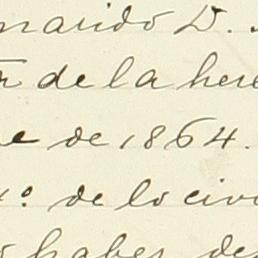 marido D.
r de la here
e de 1864.
1º de lo civi
haber de